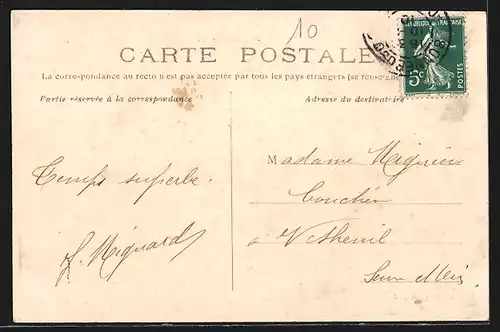 10
CARTE POSTALE
La correspondance au recto n'est pas acceptée par tous les pays étrangers (se renseigner
Partie réservée à la correspondance
Adresse du destinataire
5c
POSTES
Temps superbe.
Mignard
Madame
à Vétheuil
Seine